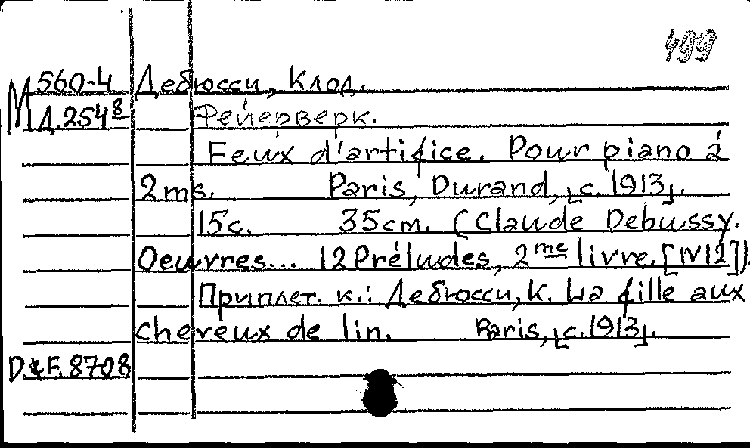 499
М 560-4 Дебюсси, Клод.
Д.254⁸ Фейерверк.
Feux d'artifice. Pour piano à
2 ms. Paris, Durand, [c. 1913].
15 с. 35 cm. (Claude Debussy.
Oeuvres... 12 Préludes, 2 me livre. [N 12])
Приплет. к.: Дебюсси, К. La fille aux
cheveux de lin. Paris, [c. 1913].
D&F. 8708